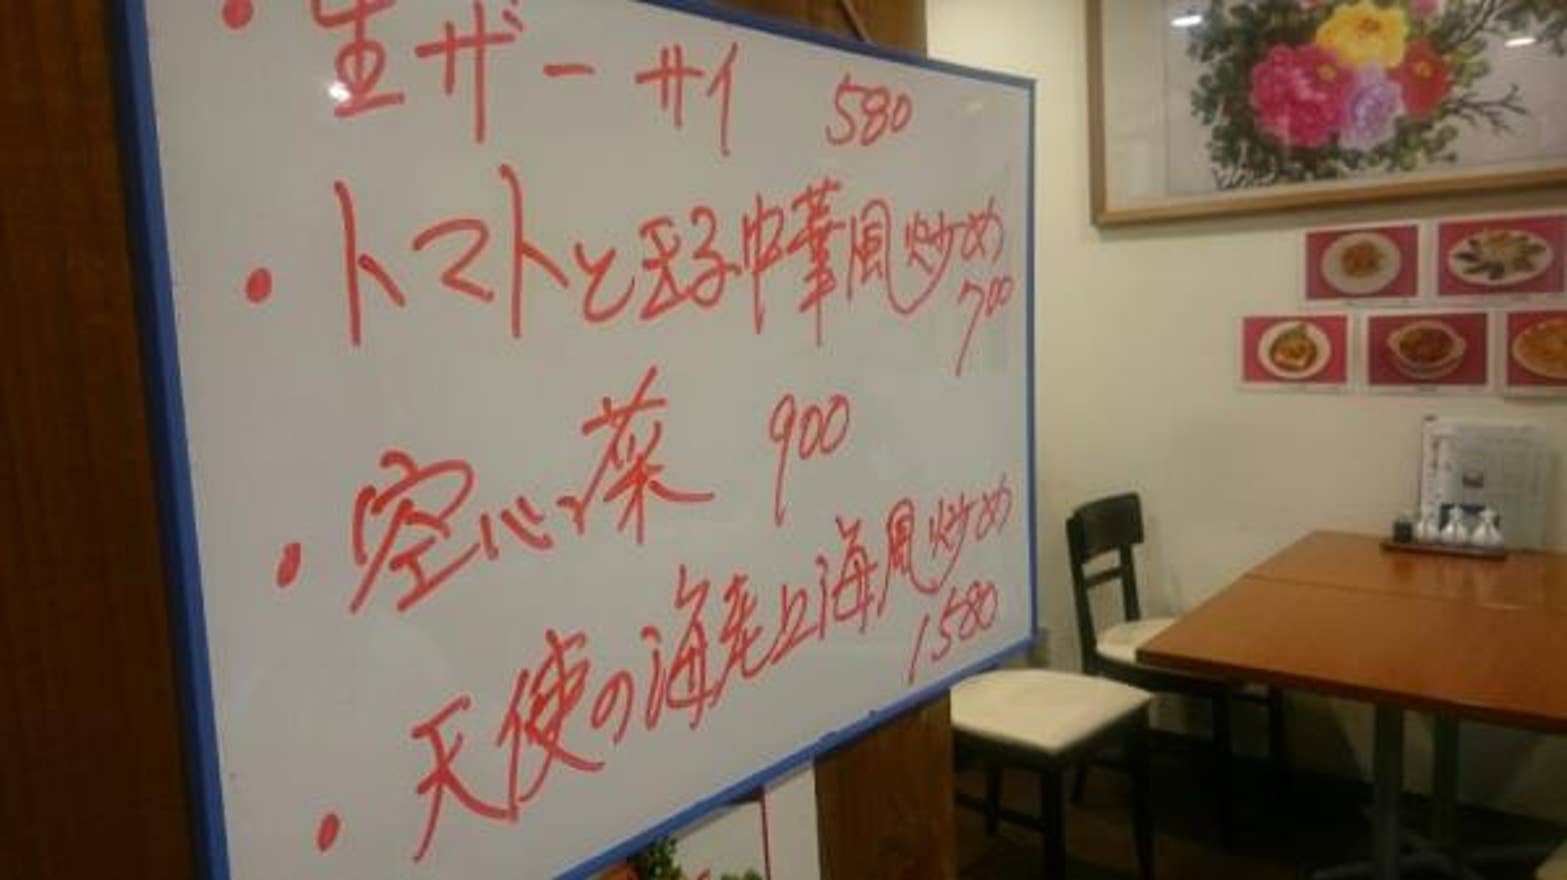 ・生ザーサイ 580
・トマトと玉子中華風炒め
700
・空心菜 900
・天使の海老上海風炒め
1580